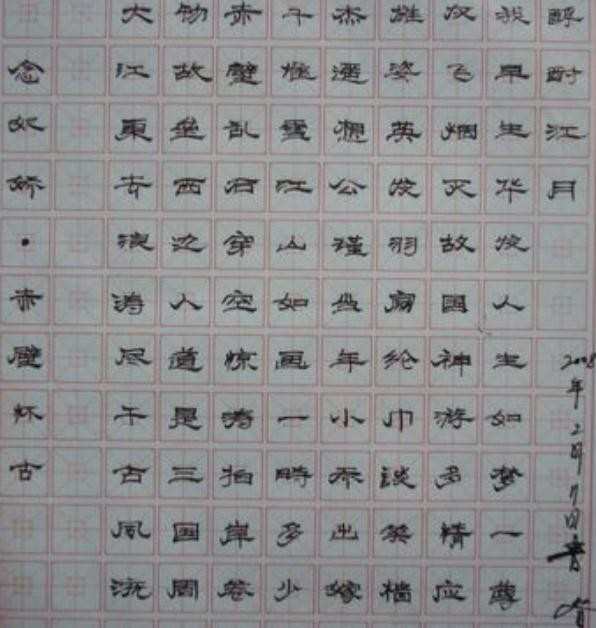 念奴娇·赤壁怀古
大江東去浪涛尽千古風流
物故垒西边人道是三国周
赤壁乱石穿空惊涛拍岸卷
千堆雪江山如画一時多少
杰遥想公瑾当年小乔出嫁
雄姿英发羽扇纶巾談笑樯
飞烟灭故国神游多情应
我早生华发人生如梦一尊
酹江月
2008年2月7日